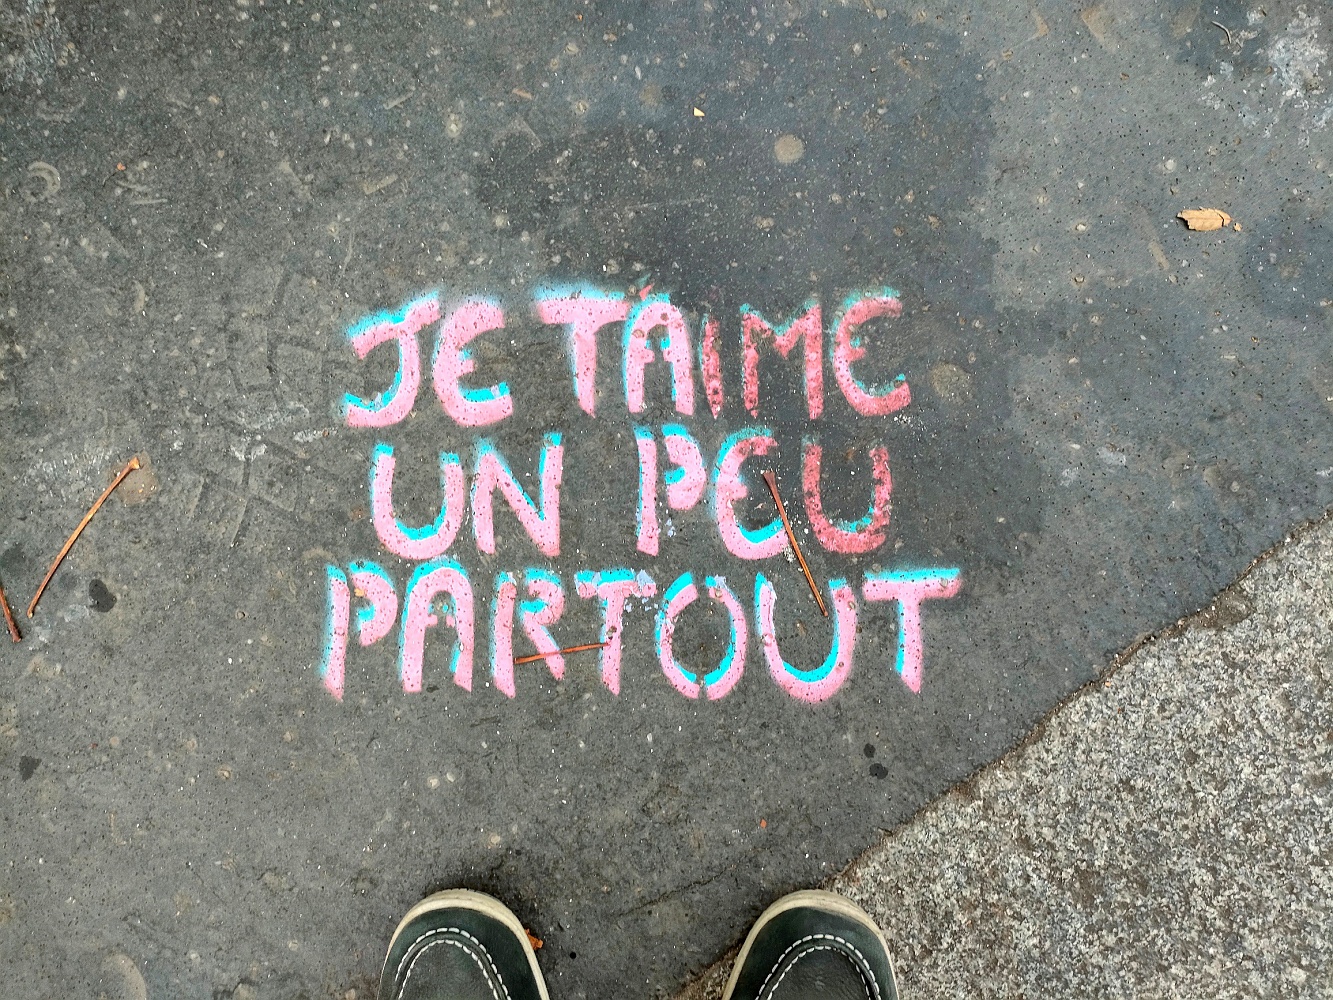 JE T'AIME
UN PEU
PARTOUT